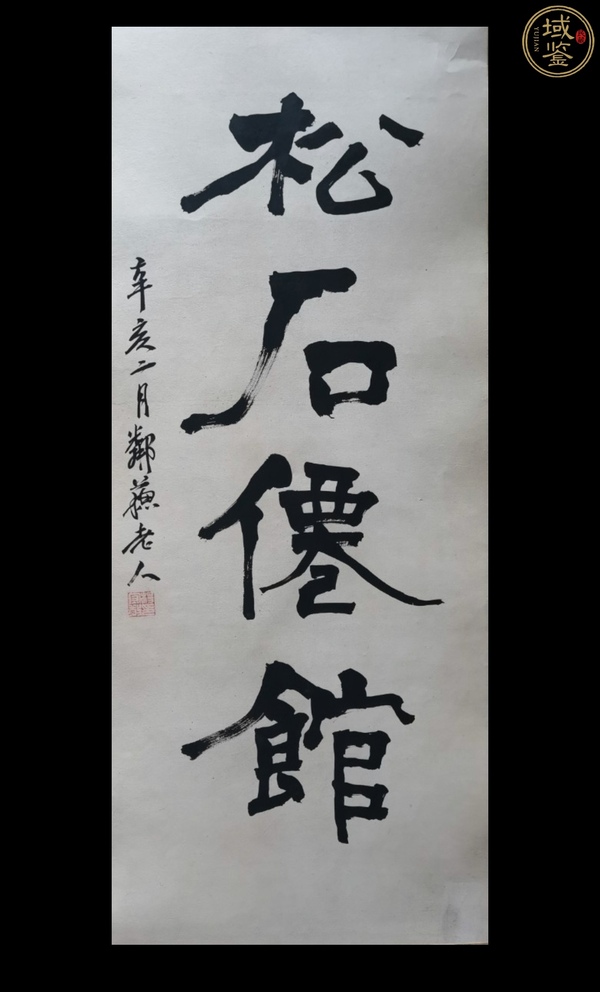 松石僊館
辛亥二月鄰蘇老人
域鑒
YUJIAN